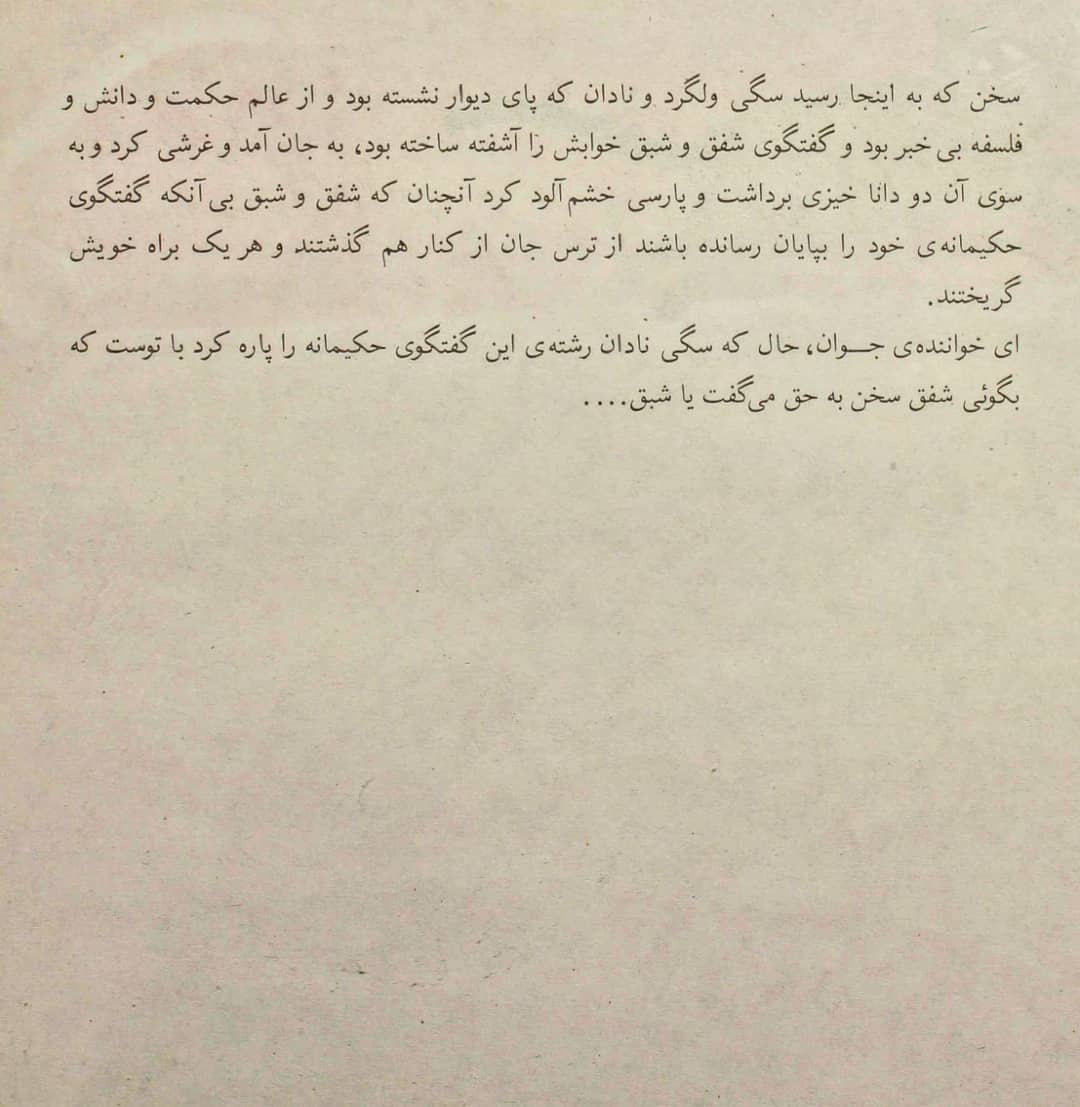 سخن که به اینجا رسید سگی ولگرد و نادان که پای دیوار نشسته بود و از عالم حکمت و دانش و
فلسفه بی خبر بود و گفتگوی شفق و شبق خوابش را آشفته ساخته بود، به جان آمد و غرشی کرد و به
سوی آن دو دانا خیزی برداشت و پارسی خشم‌آلود کرد آنچنان که شفق و شبق بی‌آنکه گفتگوی
حکیمانه‌ی خود را بپایان رسانده باشند از ترس جان از کنار هم گذشتند و هر یک براه خویش
گریختند.
ای خواننده‌ی جـــوان، حال که سگی نادان رشته‌ی این گفتگوی حکیمانه را پاره کرد با توست که
بگوئی شفق سخن به حق می‌گفت یا شبق....